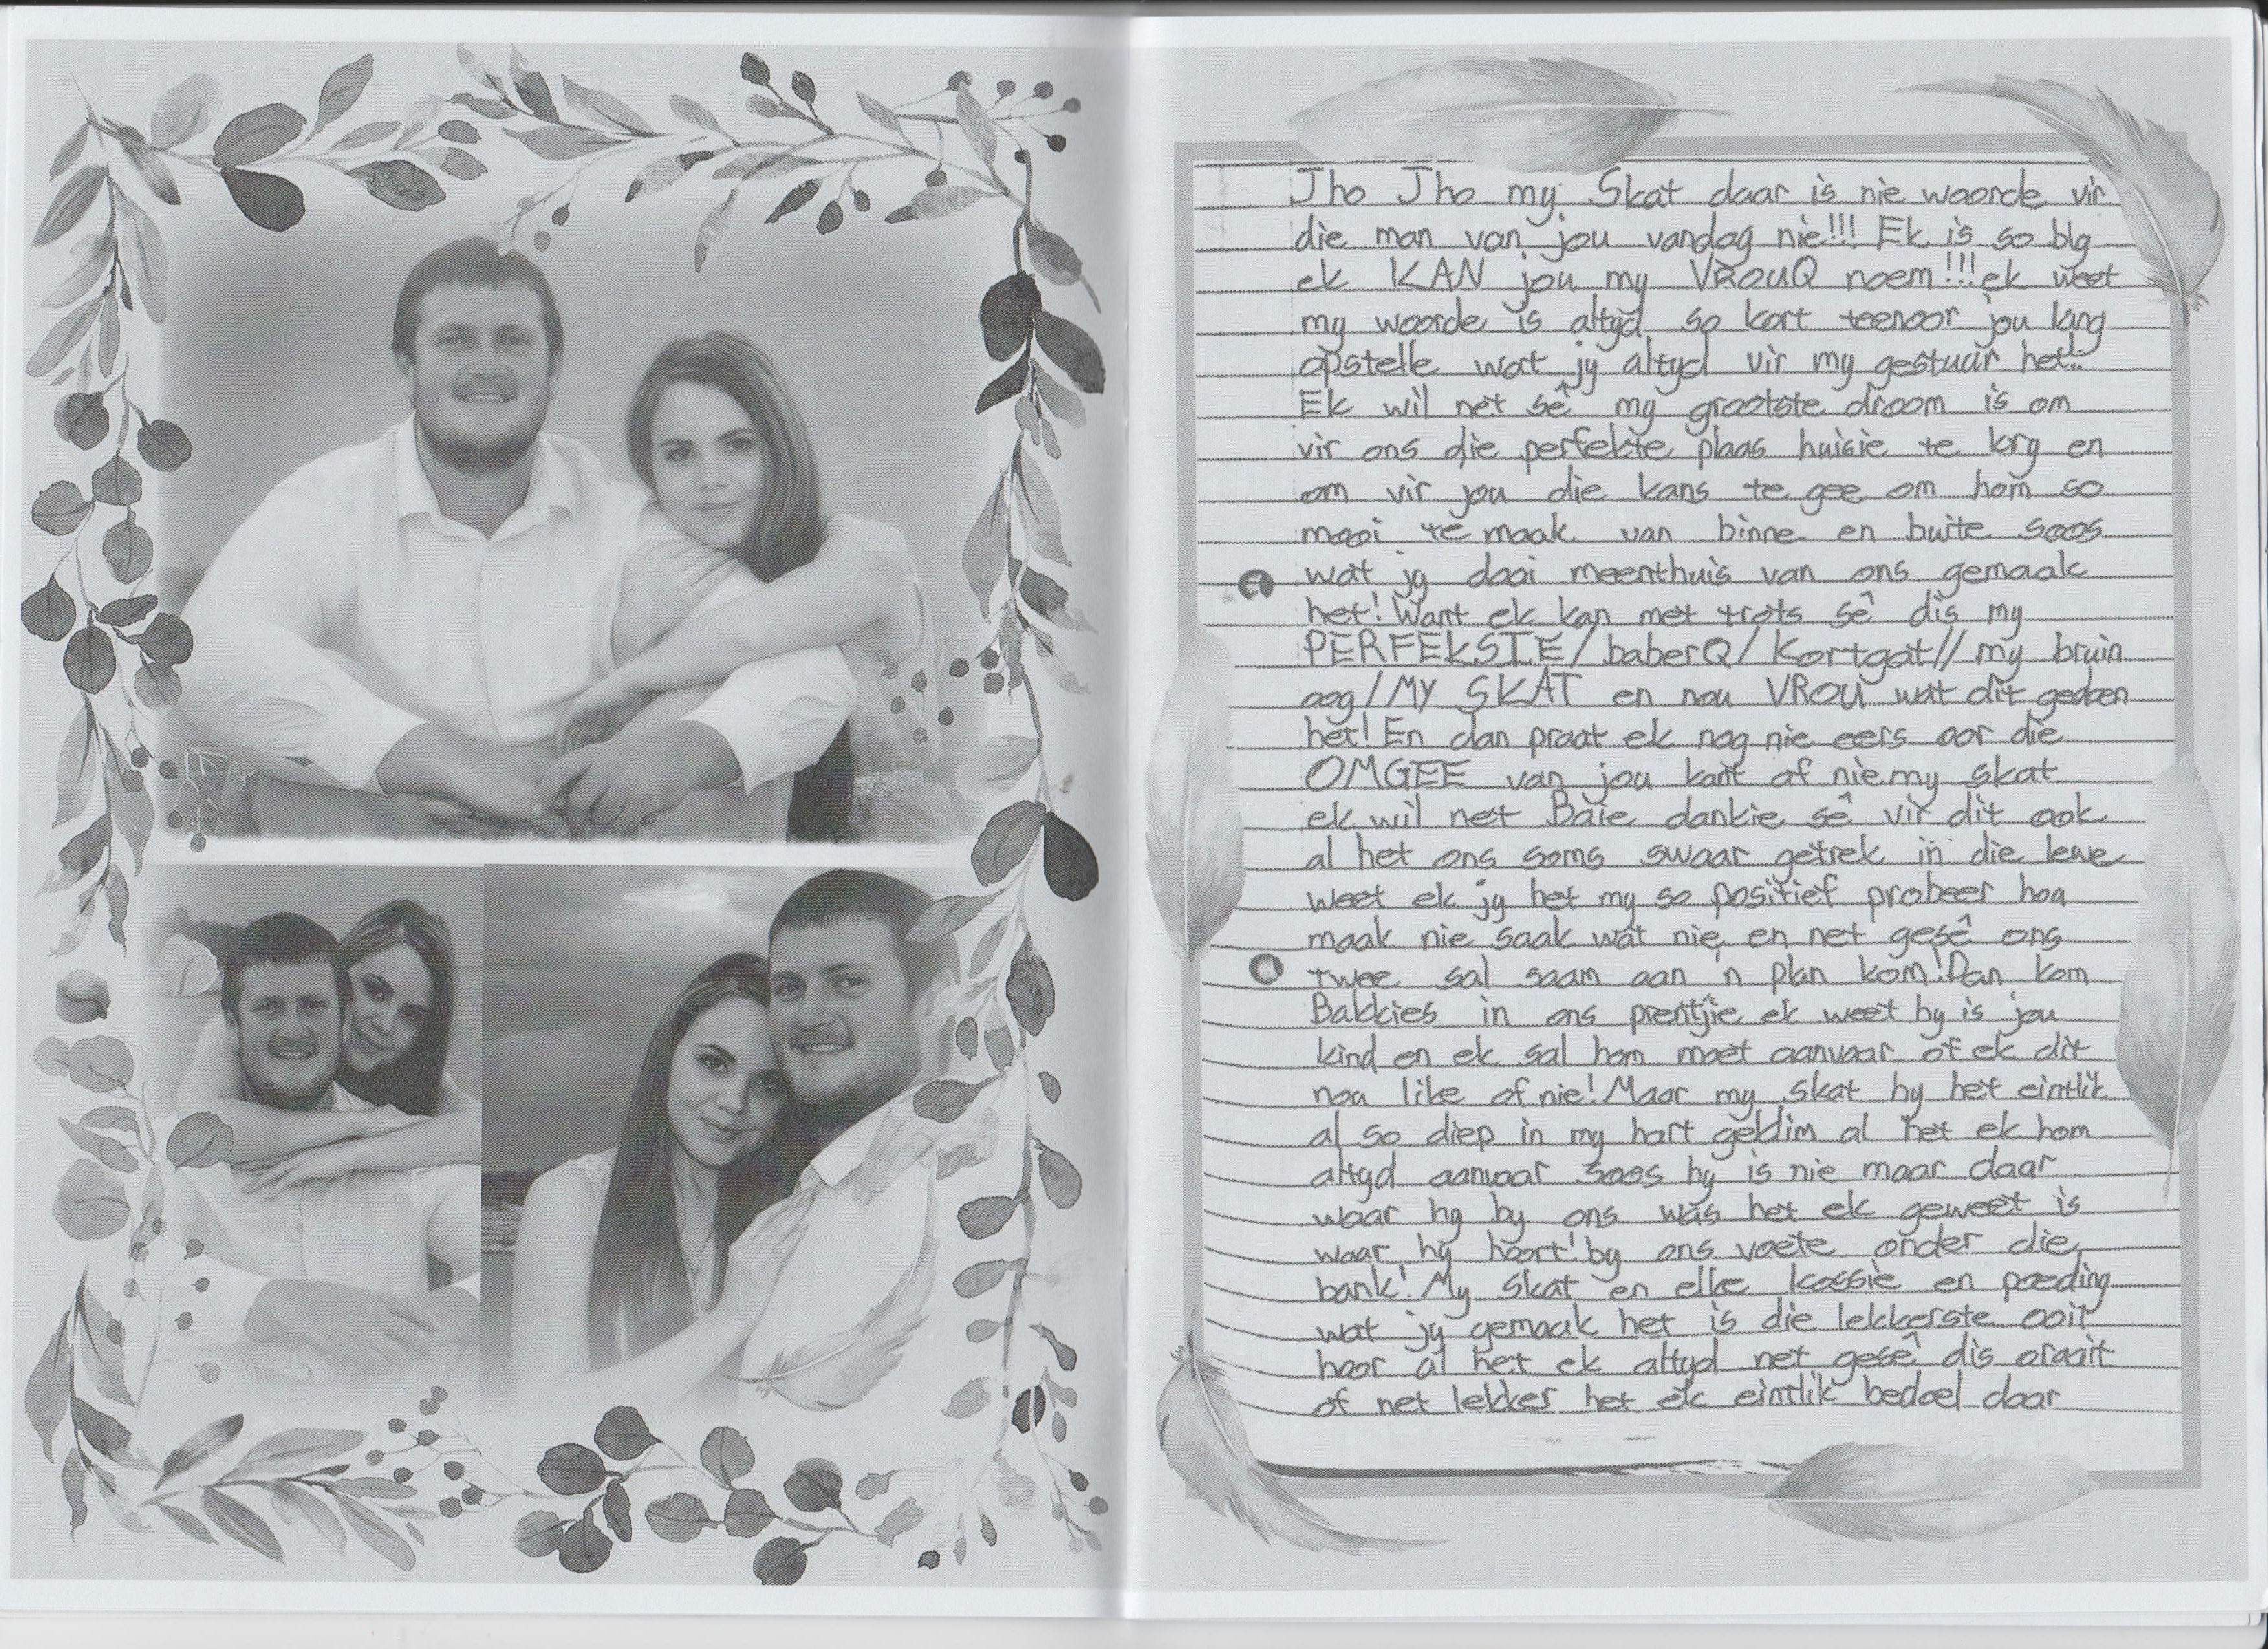 Jho Jho my Skat daar is nie woorde vir
die man van jou vandag nie!!! Ek is so bly
ek KAN jou my VROUQ noem!!! ek weet
my woorde is altyd so kort teenoor jou lang
opstelle wat jy altyd vir my gestuur het!
Ek wil net sê my grootste droom is om
vir ons die perfekte plaas huisie te kry en
om vir jou die kans te gee om hom so
mooi te maak van binne en buite soos
wat jy daai meenthuis van ons gemaak
het! Want ek kan met trots sê dis my
PERFEKSIE/baberQ/Kortgat//my bruin
oog/MY SKAT en nou VROU wat dit gedoen
het! En dan praat ek nog nie eers oor die
OMGEE van jou kant af nie my skat
ek wil net Baie dankie sê vir dit ook
al het ons soms swaar getrek in die lewe
weet ek jy het my so positief probeer hou
maak nie saak wat nie, en net gesê ons
twee sal saam aan 'n plan kom! Dan kom
Bakkies in ons prentjie ek weet hy is jou
kind en ek sal hom moet aanvaar of ek dit
nou like of nie! Maar my skat hy het eintlik
al so diep in my hart geklim al het ek hom
altyd aanvaar soos hy is nie maar daar
waar hy by ons was het ek geweet is
waar hy hoort! by ons voete onder die
bank! My skat en elke kossie en poeding
wat jy gemaak het is die lekkerste ooit
hoor al het ek altyd net gesê dis oraait
of net lekker het ek eintlik bedoel daar